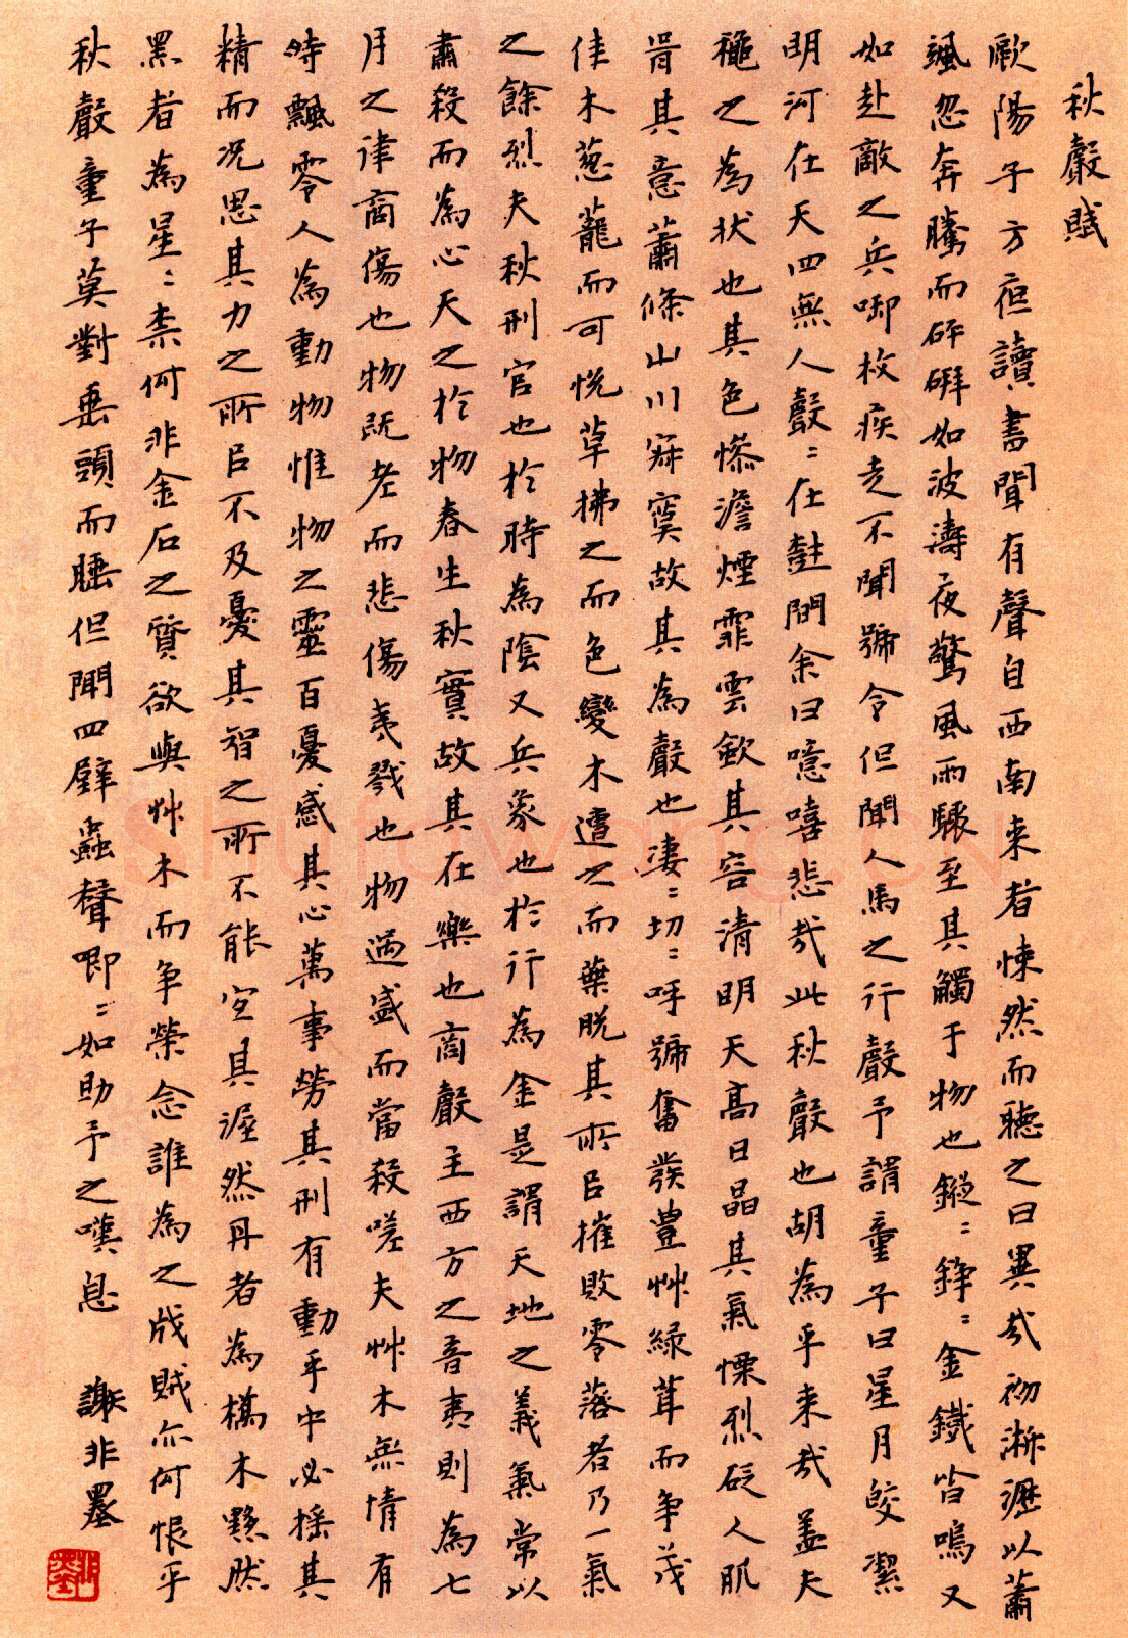 秋聲賦
歐陽子方夜讀書聞有聲自西南来者悚然而聴之曰異哉初淅瀝以蕭
颯忽奔騰而砰磞如波濤夜驚風雨驟至其觸于物也鏦〻錚〻金鐵皆鳴又
如赴敵之兵啣枚疾走不聞號令但聞人馬之行聲予謂童子曰星月皎潔
明河在天四無人聲〻在樹間余曰噫嘻悲哉此秋聲也胡為乎来哉盖夫
穐之為状也其色惨澹煙霏雲歛其容清明天高日晶其氣慄烈砭人肌
骨其意蕭條山川寂寞故其為聲也凄〻切〻呼號奮發豊艸緑茸而争茂
佳木葱蘢而可悦草拂之而色變木遭之而葉脱其所㠯摧敗零落者乃一氣
之餘烈夫秋刑官也於時為陰又兵象也於行為金是謂天地之義氣常以
肅殺而為心天之於物春生秋實故其在樂也商聲主西方之音夷則為七
月之律商傷也物既老而悲傷夷戮也物過盛而當殺嗟夫艸木無情有
時飄零人為動物惟物之靈百憂感其心萬事勞其刑有動乎中必揺其
精而况思其力之所㠯不及憂其智之所不能宜其渥然丹者為槁木黟然
黑者為星〻柰何非金石之質欲與艸木而争榮念誰為之戕賊亦何恨乎
秋聲童子莫對垂頭而睡但聞四壁蟲聲唧〻如助予之嘆息 謝非墨
shufawang.cn